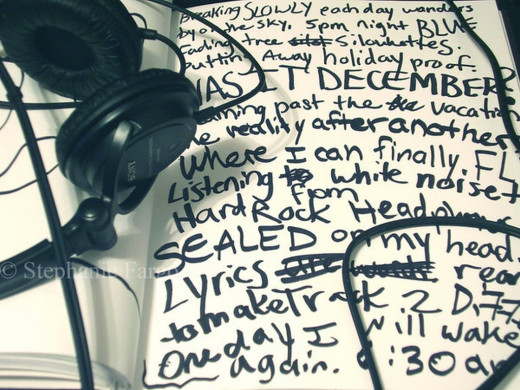 Breaking SLOWLY each day wanders
by of the sky. 5pm night BLUE
Fading tree Silouhettes.
puttin' Away holiday proof.
WAS IT DECEMBER?
past the the vacation
the reality after another
Where I can finally FL
Listening to white noise
from
Hard Rock Headphones
SEALED on my head.
Lyrics rear
to make Track 2
One day I will wake
again. 6:30 am
SONY
© Stephanie